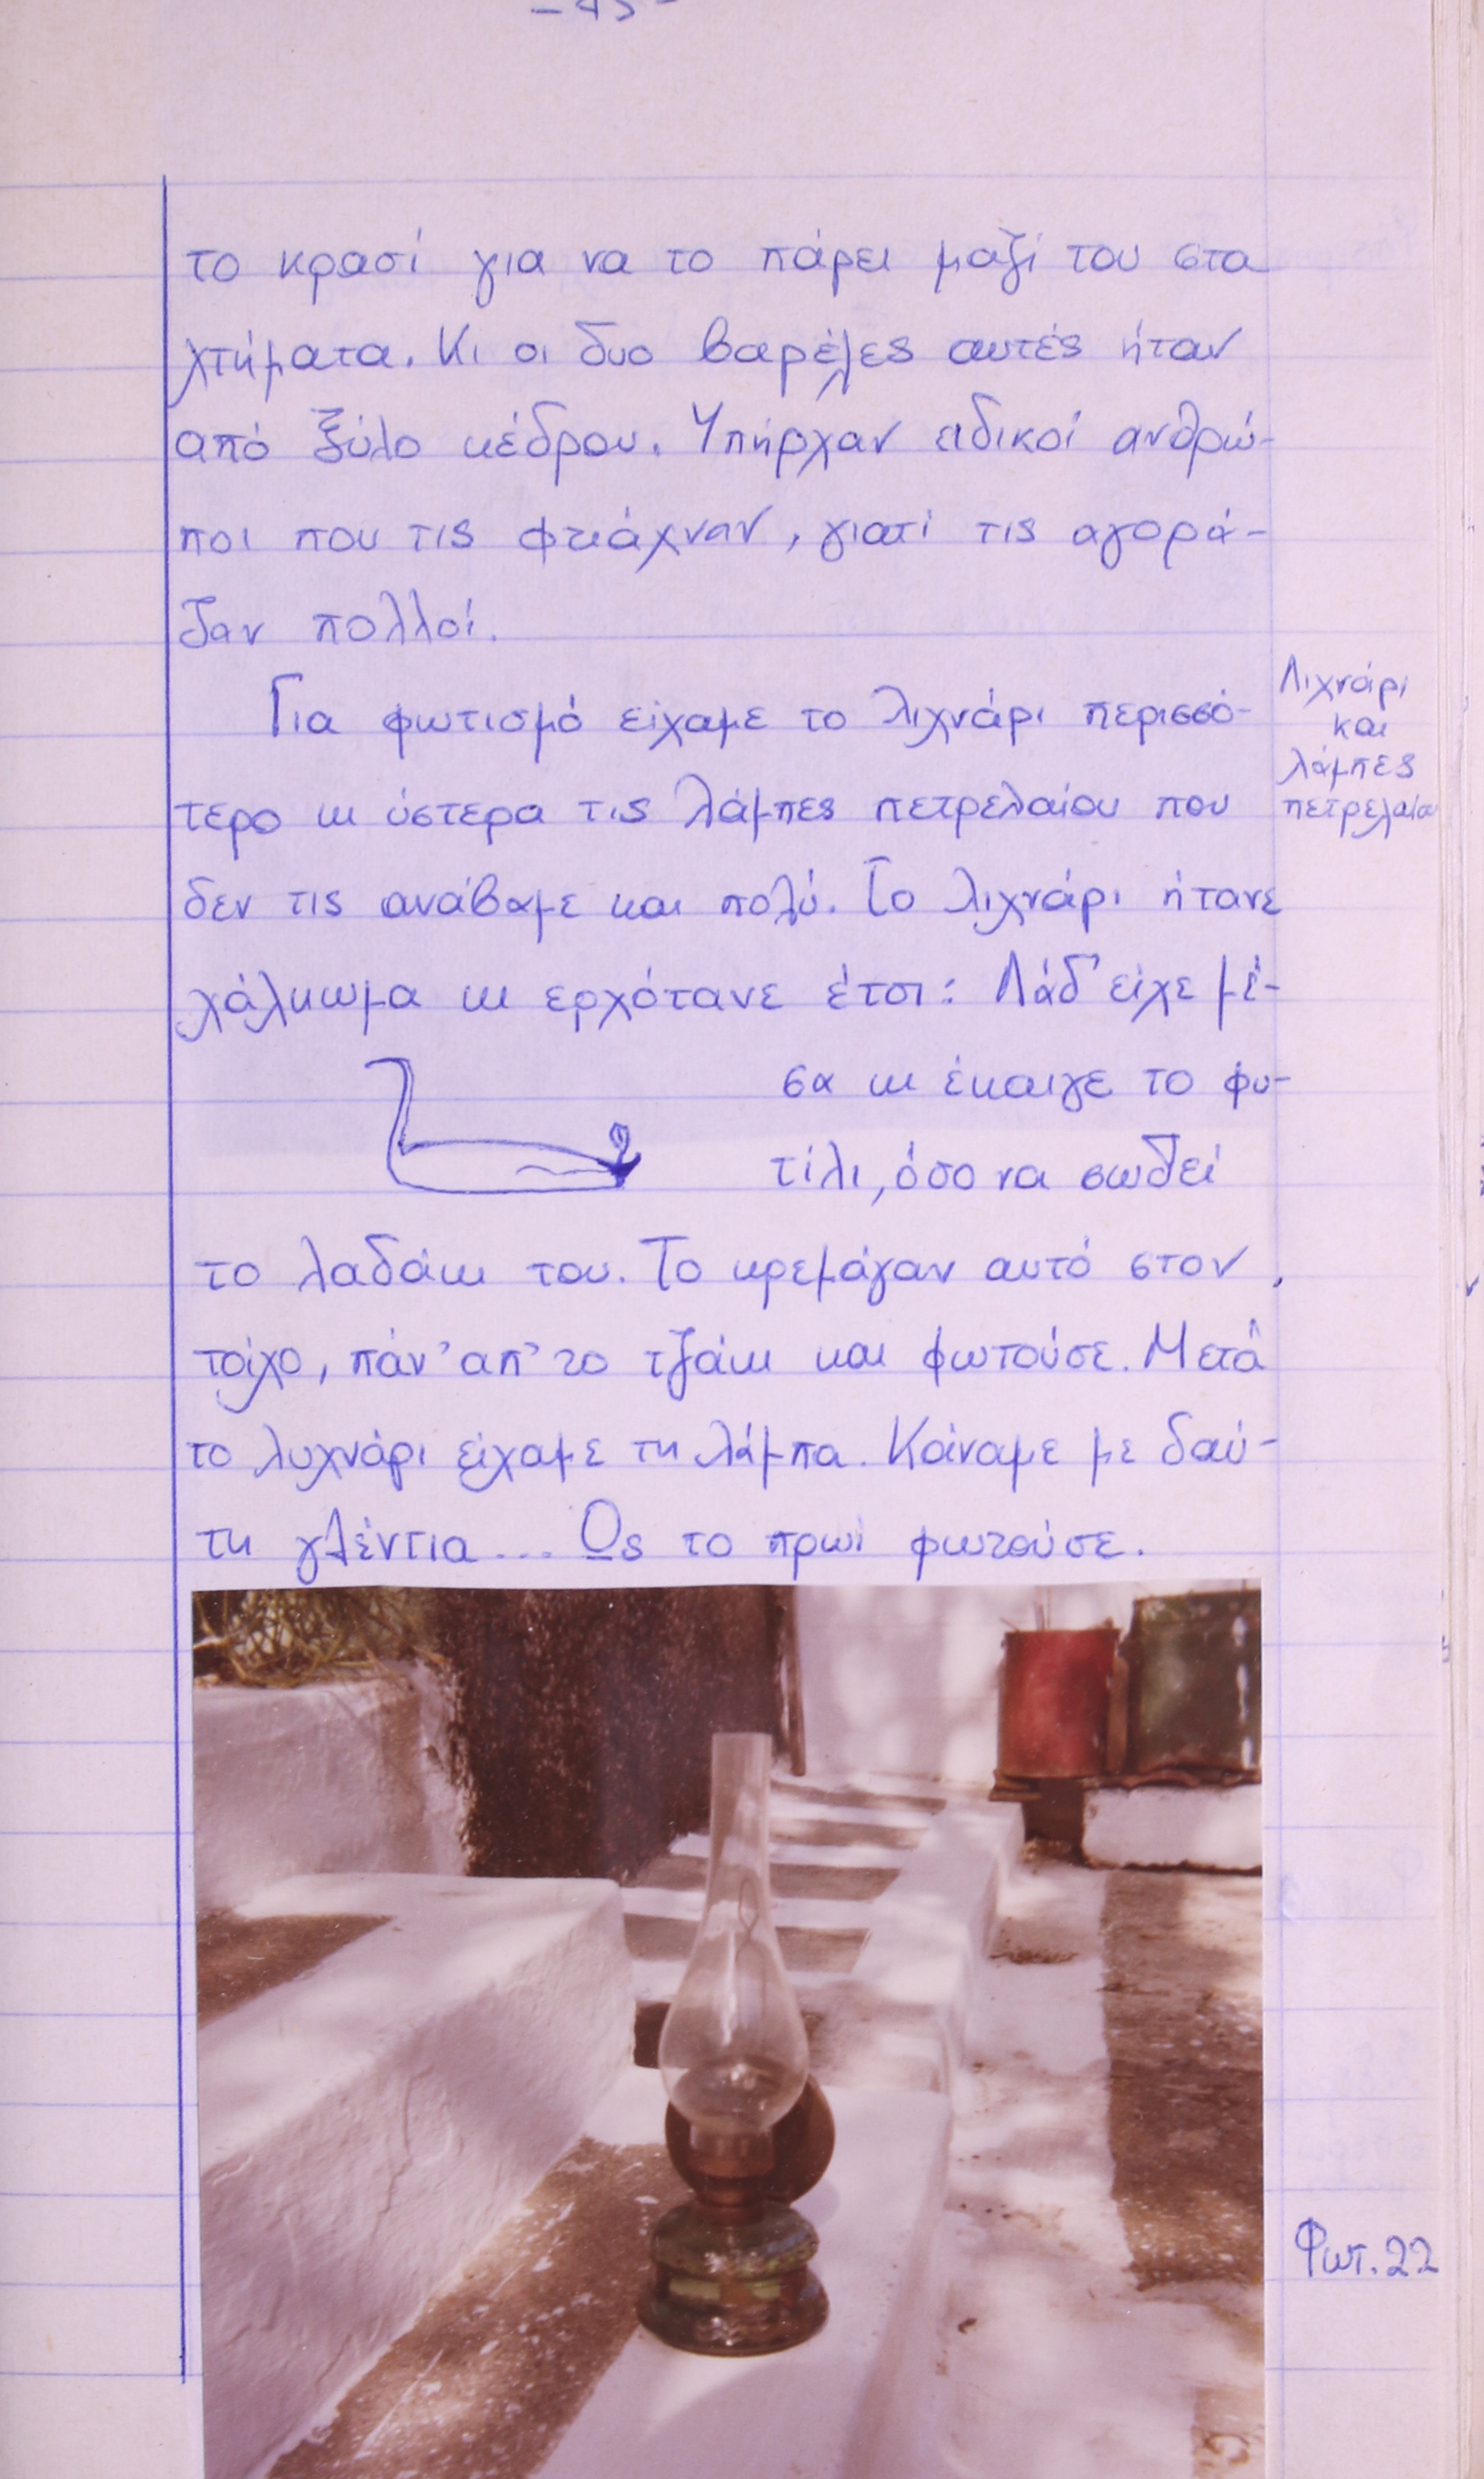 το κρασί για να το πάρει μαζί του στα
χτήματα. Κι οι δυο βαρέλες αυτές ήταν
από ξύλο κέδρου. Υπήρχαν ειδικοί ανθρώ-
ποι που τις φτιάχναν, γιατί τις αγορά-
ζαν πολλοί.
Για φωτισμό είχαμε το λιχνάρι περισσό-
τερο κι ύστερα τις λάμπες πετρελαίου που
δεν τις ανάβαμε και πολύ. Το λιχνάρι ήτανε
χάλκωμα κι ερχότανε έτσι: Λάδ' είχε μέ-
σα κι έκαιγε το φυ-
τίλι, όσο να σωθεί
το λαδάκι του. Το κρεμάγαν αυτό στον
τοίχο, πάν' απ' το τζάκι και φωτούσε. Μετά
το λυχνάρι είχαμε τη λάμπα. Κάναμε με δαύ-
τη γλέντια... Ως το πρωί φωτούσε.
Λιχνάρι
και
λάμπες
πετρελαίου
Φωτ. 22